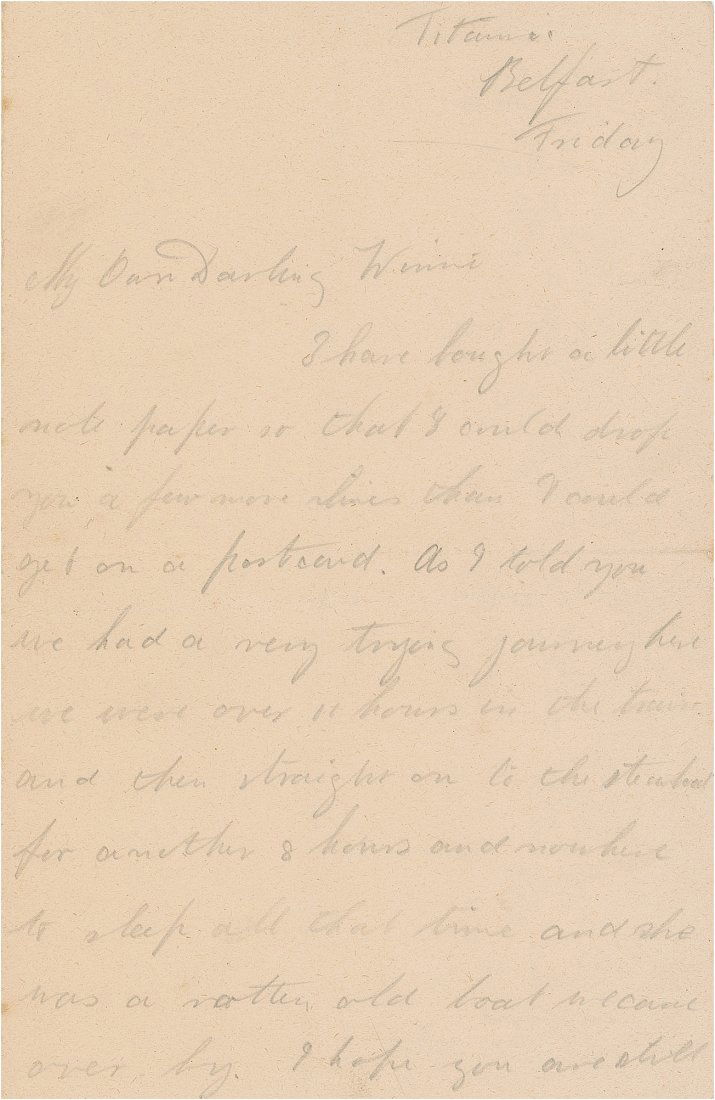 Titanic.
Belfast.
Friday
My Own Darling Winnie
I have bought a little
note paper so that I could drop
you a few more lines than I could
get on a postcard. As I told you
we had a very trying journey here
we were over 11 hours in the train
and then straight on to the steamboat
for another 8 hours and nowhere
to sleep all that time and she
was a rotten old boat we came
over by. I hope you are still